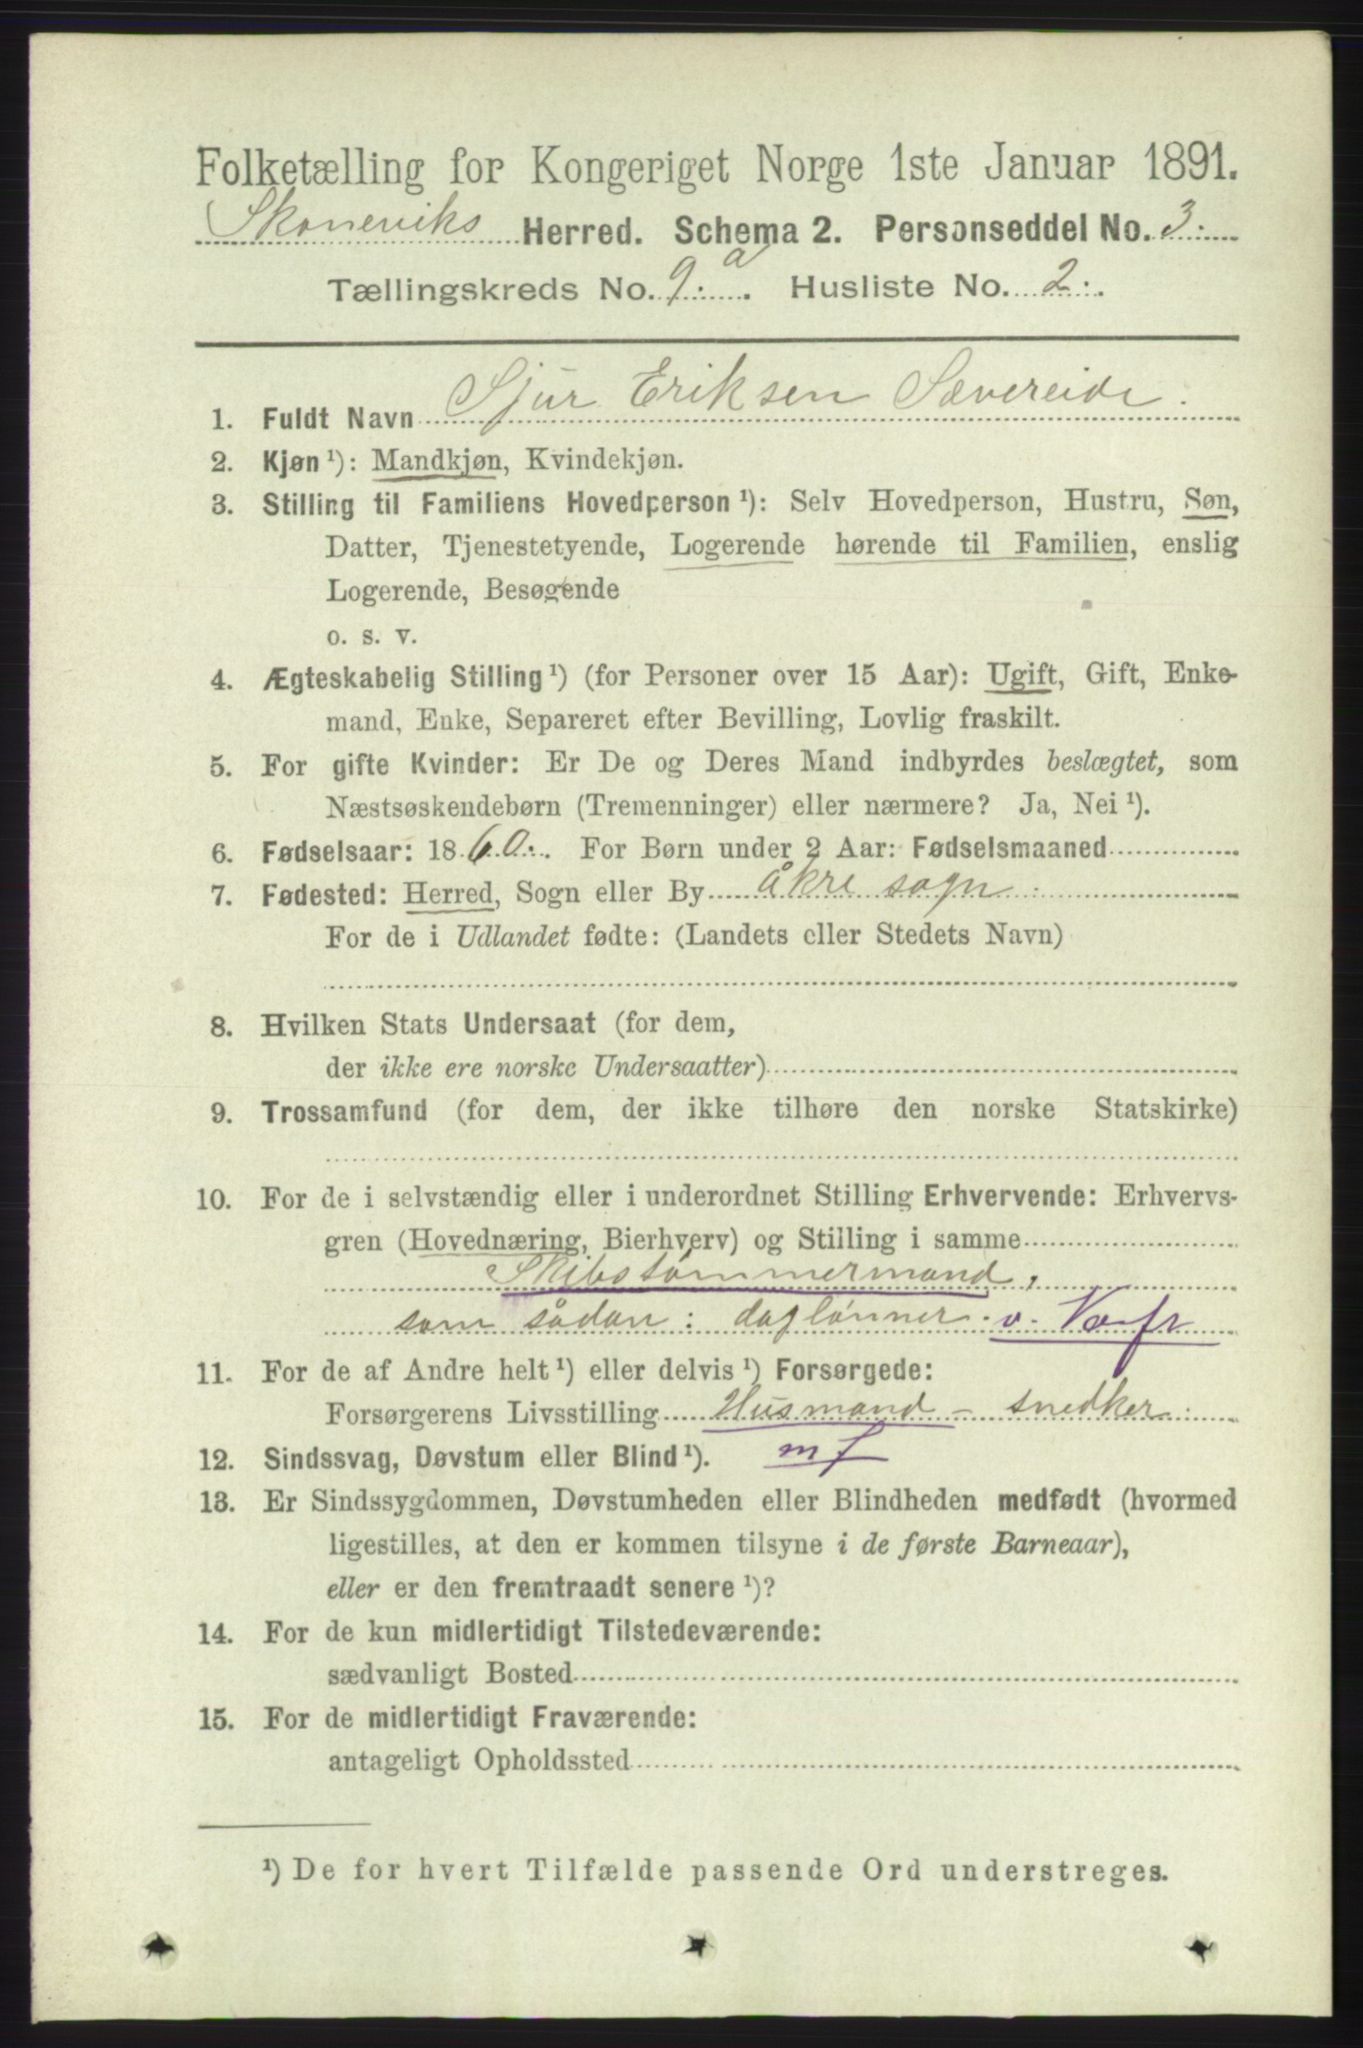 Folketælling for Kongeriget Norge 1ste Januar 1891.
Skoneviks Herred. Schema 2. Personseddel No. 3.
Tællingskreds No. 9.a. Husliste No. 2.
1. Fuldt Navn Sjur Eriksen Sævereide.
2. Kjøn ¹): Mandkjøn, Kvindekjøn.
3. Stilling til Familiens Hovedperson ¹): Selv Hovedperson, Hustru, Søn,
Datter, Tjenestetyende, Logerende hørende til Familien, enslig
Logerende, Besøgende
o. s. v.
4. Ægteskabelig Stilling ¹) (for Personer over 15 Aar): Ugift, Gift, Enke-
mand, Enke, Separeret efter Bevilling, Lovlig fraskilt.
5. For gifte Kvinder: Er De og Deres Mand indbyrdes beslægtet, som
Næstsøskendebørn (Tremenninger) eller nærmere? Ja, Nei ¹).
6. Fødselsaar: 1860. For Børn under 2 Aar: Fødselsmaaned
7. Fødested: Herred, Sogn eller By åkre sogn.
For de i Udlandet fødte: (Landets eller Stedets Navn)
8. Hvilken Stats Undersaat (for dem,
der ikke ere norske Undersaatter)
9. Trossamfund (for dem, der ikke tilhøre den norske Statskirke)
10. For de i selvstændig eller i underordnet Stilling Erhvervende: Erhvervs-
gren (Hovednæring, Bierhverv) og Stilling i samme
Skibstømmermand,
som sådan: daglønner. v. Værft
11. For de af Andre helt ¹) eller delvis ¹) Forsørgede:
Forsørgerens Livsstilling Husmand - snedker.
12. Sindssvag, Døvstum eller Blind ¹). mf
13. Er Sindssygdommen, Døvstumheden eller Blindheden medfødt (hvormed
ligestilles, at den er kommen tilsyne i de første Barneaar),
eller er den fremtraadt senere ¹)?
14. For de kun midlertidigt Tilstedeværende:
sædvanligt Bosted
15. For de midlertidigt Fraværende:
antageligt Opholdssted
¹) De for hvert Tilfælde passende Ord understreges.